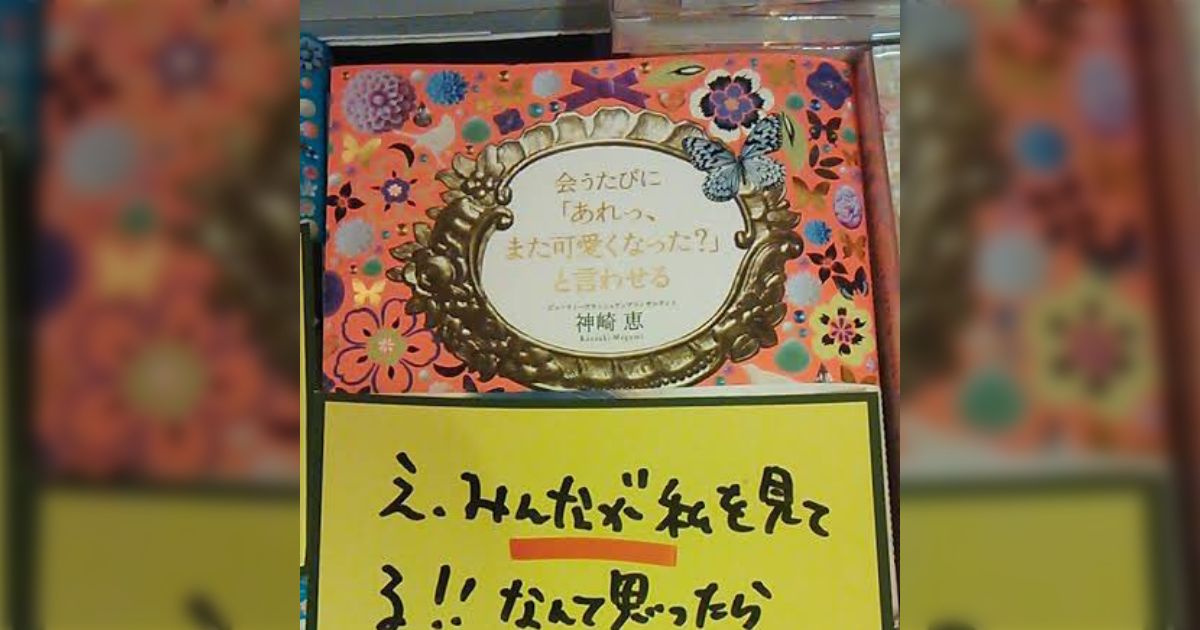 会うたびに
「あれっ、
また可愛くなった?」
と言わせる
神崎 恵
Kanzaki Megumi
え、みんなが私を見て
る!!なんて思ったら